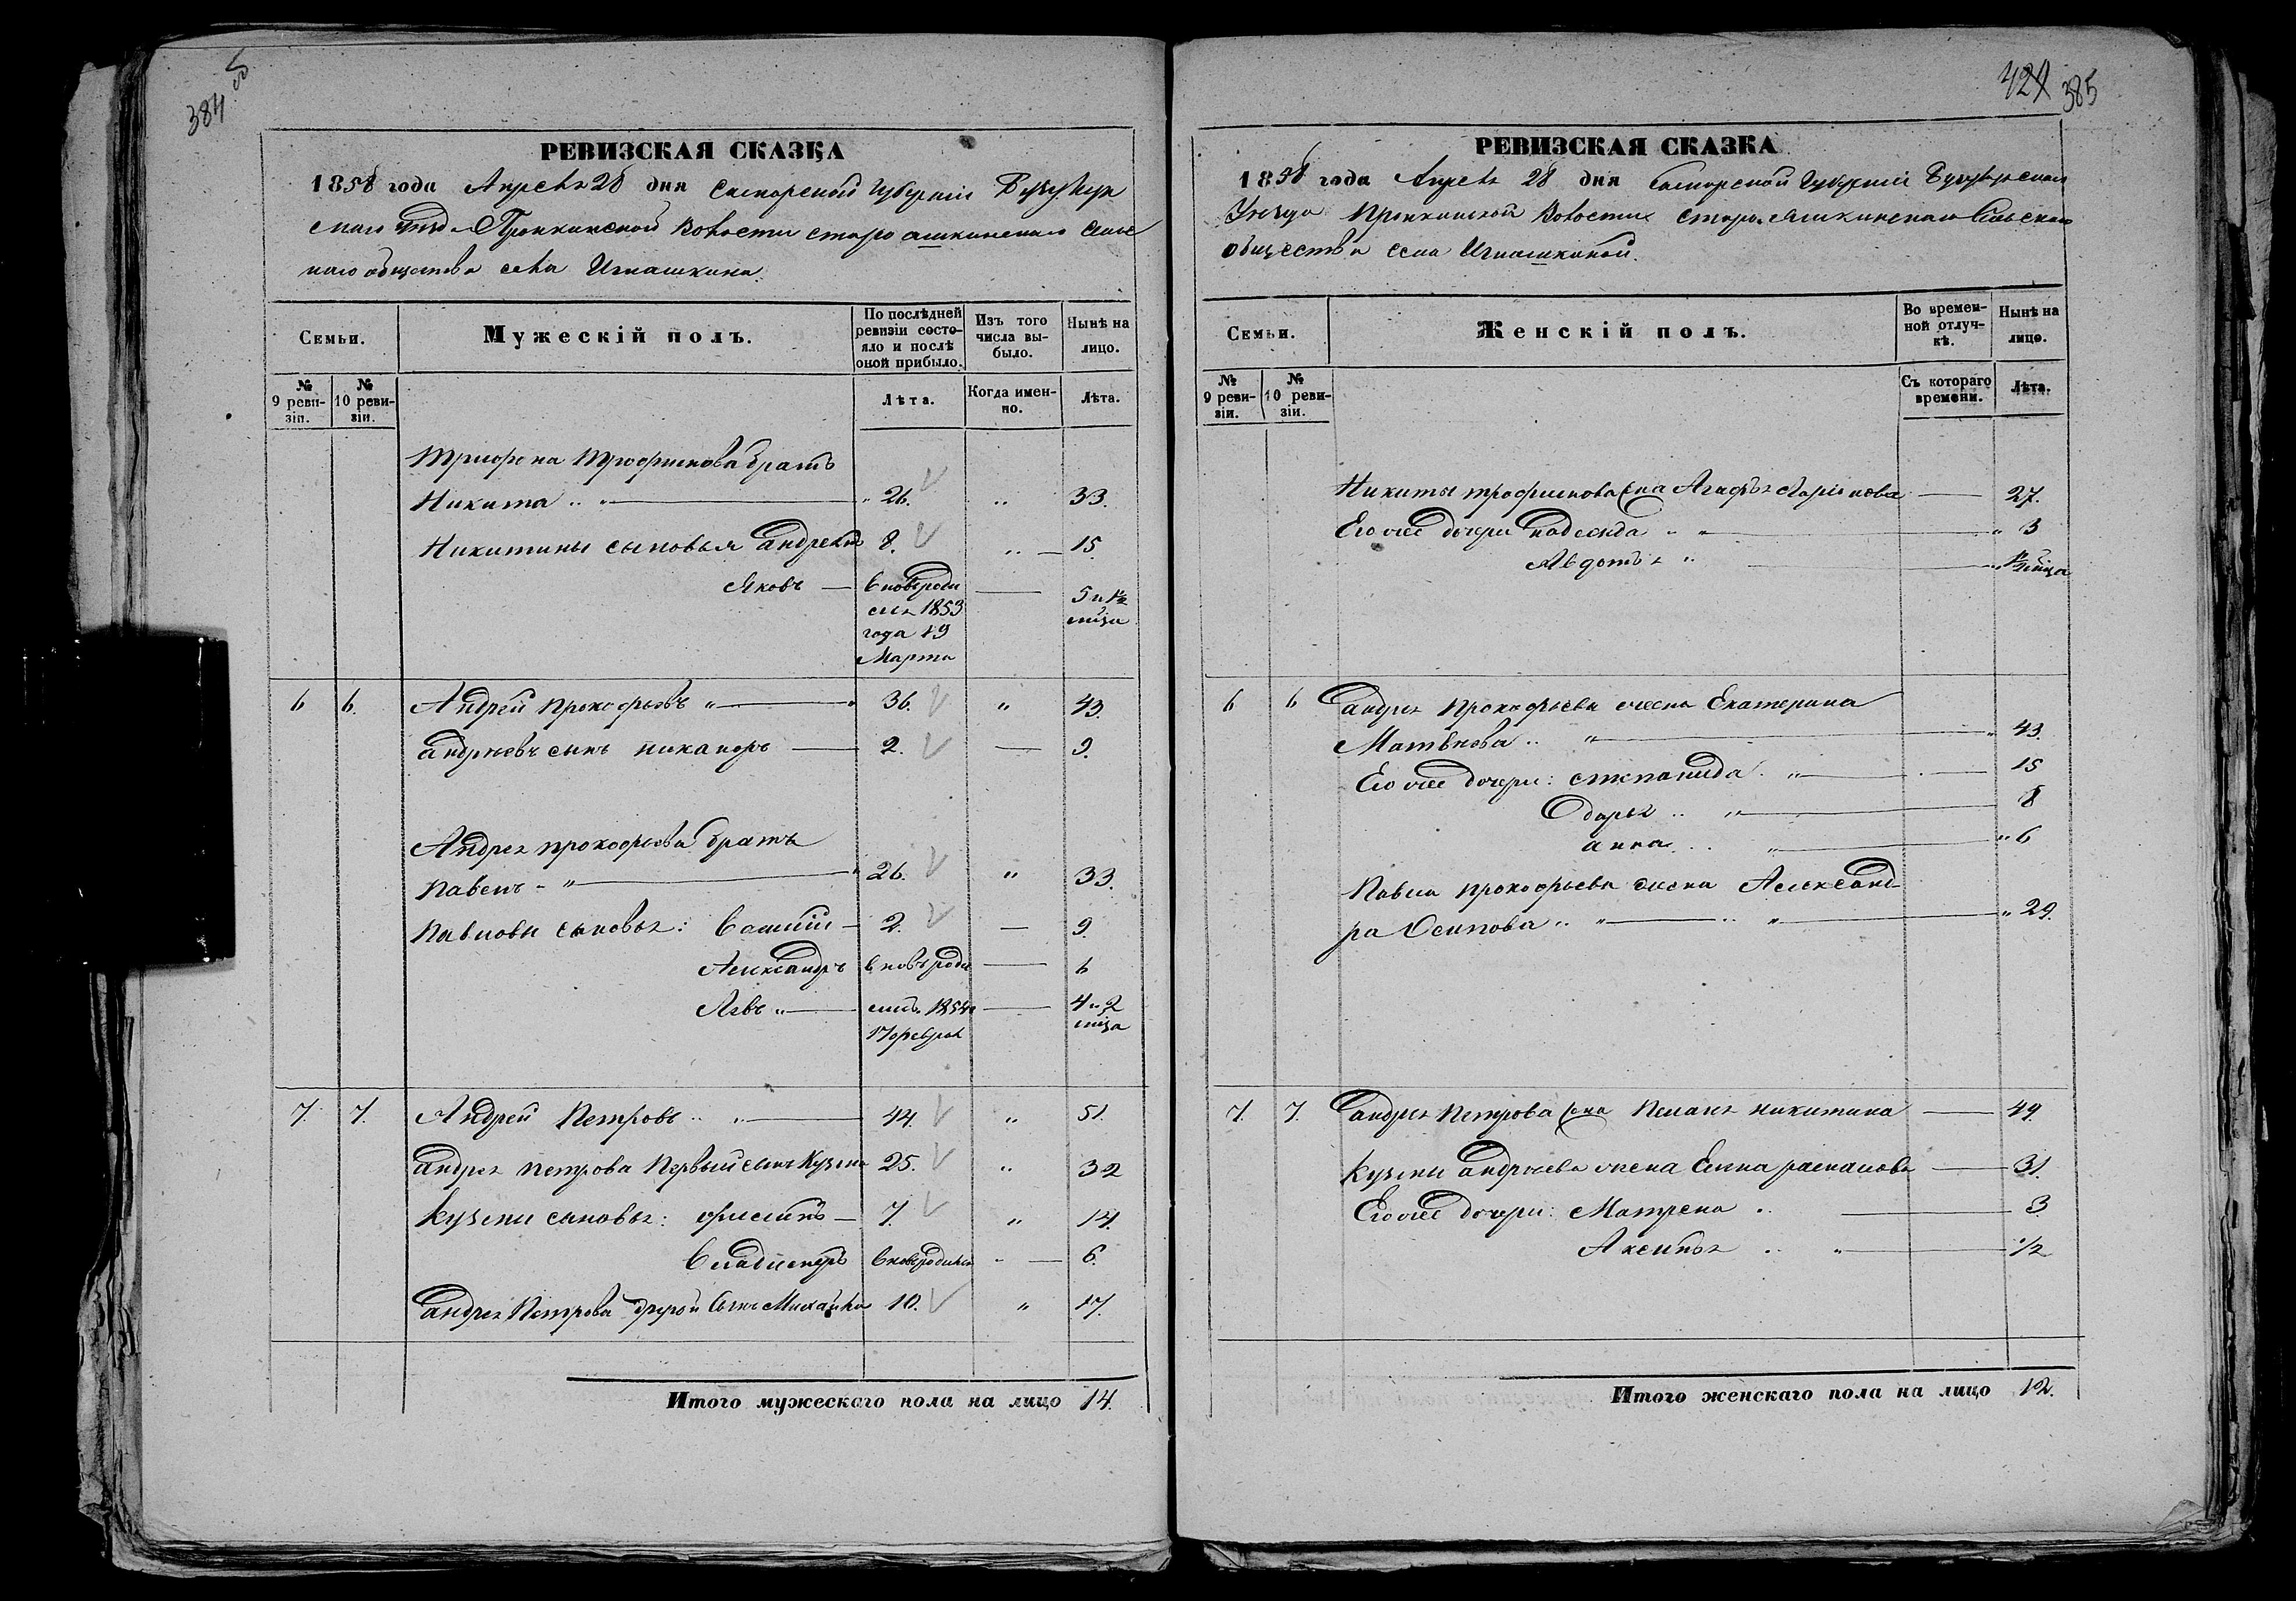 384 об
РЕВИЗСКАЯ СКАЗКА
1858 года Апреля 28 дня Самарской Губернiи Бузулук
скаго уезда Пронкинской Волости старо ашкинскаго сель
скаго общества села Игнашкина.
Семьи.
Мужескiй полъ.
По послѣдней ревизiи состо-яло и послѣ оной прибыло.
Изъ того числа вы-было.
Нынѣ на лицо.
№ 9 реви-зiи.
№ 10 реви-зiи.
Лѣта.
Когда имен-но.
Лѣта.
Трифона Трофимова братъ
Никита .. " 26. .. 33.
Никитины сыновья Андреянъ 8. .. 15.
Яковъ вновь роди 5 и 1½
ся 1853 мѣца
года 19
Марта
6 6. Андрей Прокофьевъ " 36. " 43.
Андреевъ сынъ Никаноръ 2. 9.
Андрея Прокофьева братъ
Павелъ - " 26. " 33.
Павловы сыновья: Василiй 2. 9.
Александръ вновь роди 6
Левъ " лись. 1854 4 и 2
17 феврал мѣца
7. 7. Андрей Петровъ .. " 44. " 51.
Андрея Петрова Первый сынъ Кузма 25. " 32
Кузмы сыновья: 7. " 14.
Владимиръ вновь родился - 6.
Андрея Петрова другой сынъ Михайла 10. " 17.
Итого мужескаго пола на лицо 14.
424 385
РЕВИЗСКАЯ СКАЗКА
1858 года Апреля 28 дня Самарской Губернiи Бузулукскаго
Уезда Пронкинской Волости Старо Ашкинскаго Сельскаго
общества села Игнашкиной.
Семьи.
Женскiй полъ.
Во времен-ной отлуч-кѣ.
Нынѣ на лицо.
№ 9 реви-зiи.
№ 10 реви-зiи.
Съ котораго времени.
Лѣта.
Никиты трофимова жена Агафья Ларiонова 27.
Его же дочери Надежда - " " 3
Авдотья " ½ мѣца
6 6 Андрея Прокофьева жена Екатерина
Матвѣева .. " " 43.
Его же дочери: степанида . " 15
Дарья .. " 8
анна .. " " 6
Павла Прокофьева жена Александ-
ра Осипова .. " .. " " 29.
7. 7. Андрея Петрова жена Пелагея Никитина 49
Кузмы Андреева жена Елена 31.
Его же дочери: Матрена .. 3.
Аксинья .. " ½
Итого женскаго пола на лицо 12.